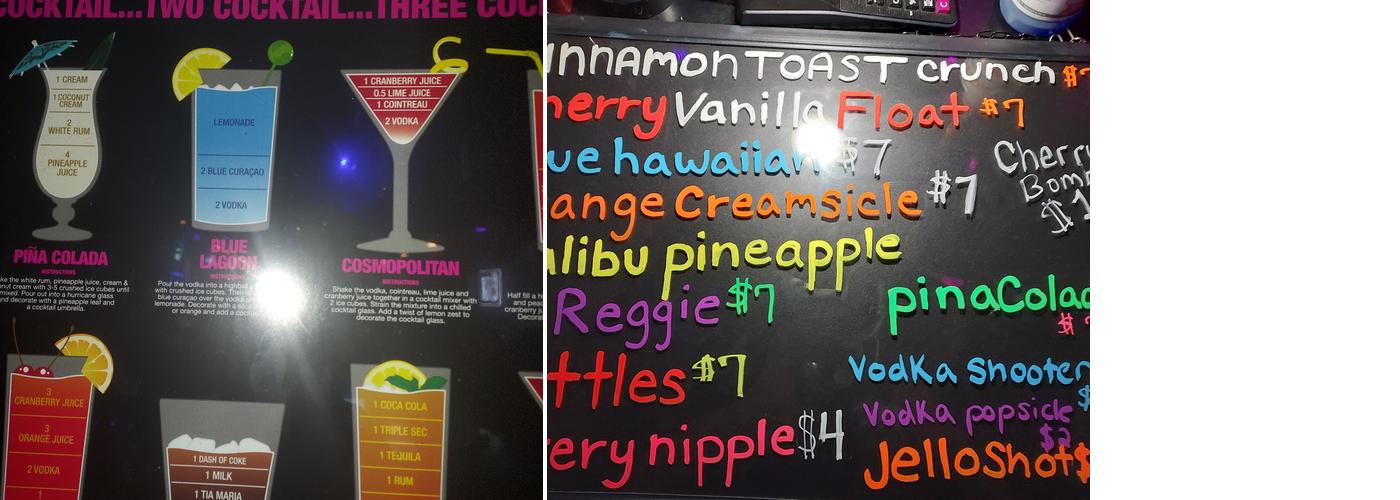 COCKTAIL...TWO COCKTAIL...THREE COC
1 CREAM
1 COCONUT
CREAM
2
WHITE RUM
4
PINEAPPLE
JUICE
PIÑA COLADA
INSTRUCTIONS
ke the white rum, pineapple juice, cream &
nut cream with 3-5 crushed ice cubes until
mixed. Pour out into a hurricane glass
and decorate with a pineapple leaf and
a cocktail umbrella.
LEMONADE
2 BLUE CURAÇAO
2 VODKA
BLUE
LAGOON
INSTRUCTIONS
Pour the vodka into a highball
with crushed ice cubes.
blue curacao over the vodka
lemonade. Decorate with a slice
or orange and add a
1 CRANBERRY JUICE
0.5 LIME JUICE
1 COINTREAU
2 VODKA
COSMOPOLITAN
INSTRUCTIONS
Shake the vodka, cointreau, lime juice and
cranberry juice together in a cocktail mixer with
2 ice cubes. Strain the mixture into a chilled
cocktail glass. Add a twist of lemon zest to
decorate the cocktail glass.
Half fill a h
and peac
cranberry ju
Decorat
3
CRANBERRY JUICE
3
ORANGE JUICE
2 VODKA
1
1 DASH OF COKE
1 MILK
1 TIA MARIA
1 COCA COLA
1 TRIPLE SEC
1 TEQUILA
1 RUM
innamon TOAST crunch $7
herry Vanilla Float $7
ue hawaiian $7
ange Creamsicle $7
alibu pineapple
Reggie $7
ttles $7
ery nipple $4
Cherry
Bomb
$1
pinaColad
$
Vodka Shooter
$
Vodka popsicle
$2
JelloShot $